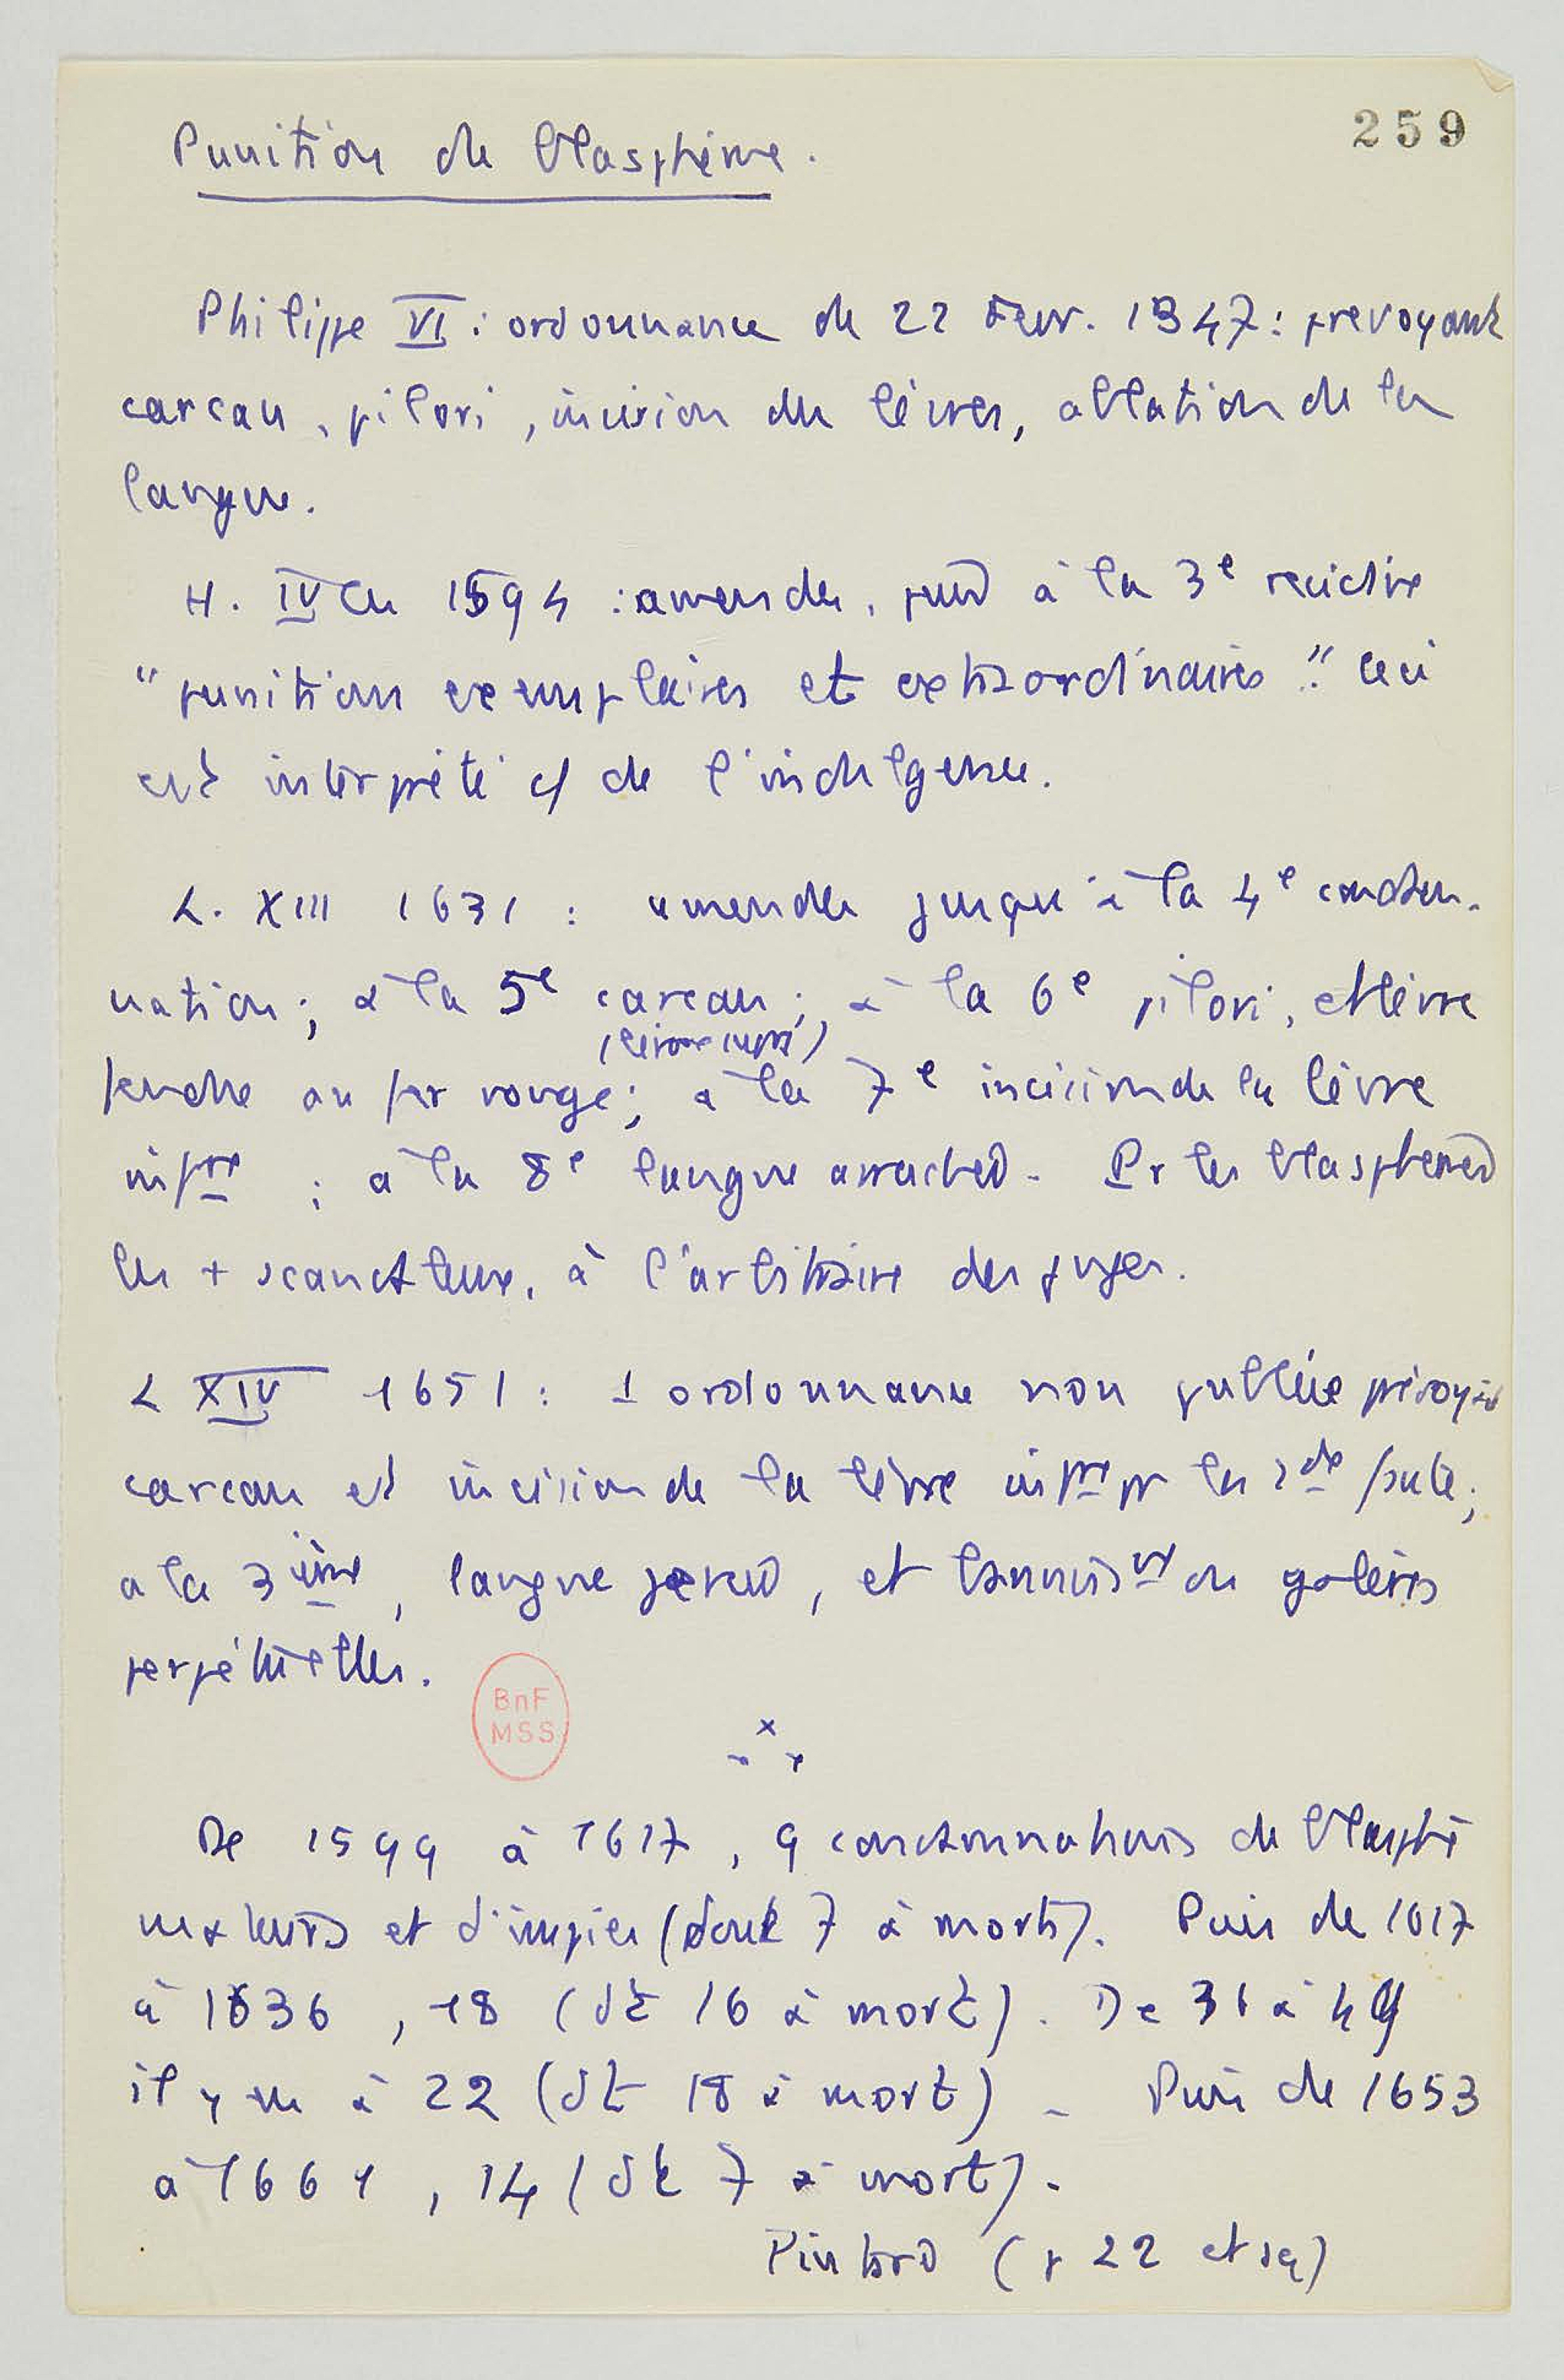 259
Punition du blasphème.
Philippe VI : ordonnance du 22 Févr. 1347 : prevoyant
carcan, pilori, incision des lèvres, ablation de la
langue.
H. IV en 1594 : amendes, puis à la 3e recidive
"punition exemplaires et extraordinaires". Ceci
est interprété c/ de l'indulgence.
L. XIII 1631 : amendes jusqu'à la 4e condam-
nation ; à la 5e carcan ; à la 6e pilori, et lèvre
(lèvre supre)
fendue au fer rouge ; à la 7e incision de la lèvre
infre ; a la 8e langue arrachée - Pr les blasphèmes
les + scandaleux, à l'arbitraire des juges.
L XIV 1651 : 1 ordonnance non publiée prévoyait
carcan et incision de la lèvre infre pr la 2de faute ;
a la 3ième, langue percée, et bannisst ou galères
perpétuelles.
BnF
MSS
De 1599 à 1617, 9 condamnations de blasphé
mateurs et d'impies (dont 7 à mort). Puis de 1617
à 1636, 18 (dt 16 à mort). De 36 à 49
il y en a 22 (dt 18 à mort) - Puis de 1653
à 1661, 14 (dt 7 à mort).
Pintard (p 22 et sq)